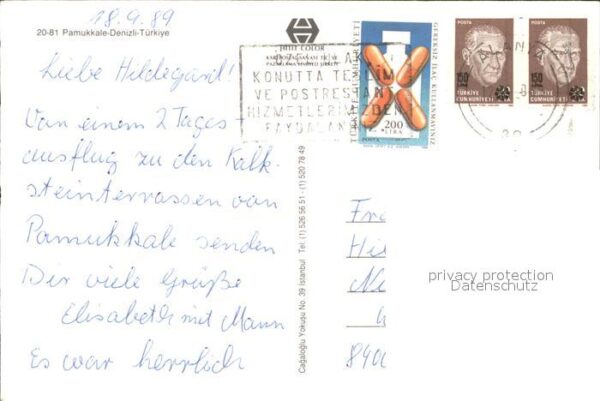 18.9.89
20-81 Pamukkale-Denizli-Türkiye
Liebe Hildegard!
Von einem 2 Tages-
ausflug zu den Kalk-
steinterrassen von
Pamukkale senden
Dir viele Grüße
Elisabeth mit Mann
Es war herrlich
COLOR
KONUTTA TESLİM
VE POSTRESTAN
HİZMETLERİMİZDEN
FAYDALAN
TÜRKİYE CUMHURİYETİ
GEREKSİZ İLAÇ KULLANMAYINIZ
200
LİRA
POSTA
POSTA
150
TÜRKİYE
CUMHURİYETİ
POSTA
150
TÜRKİYE
CUMHURİYETİ
Cağaloğlu Yokuşu No. 39 İstanbul Tel. (1) 526 56 51 - (1) 520 78 49
Fr
Hi
Ne
840
privacy protection
Datenschutz